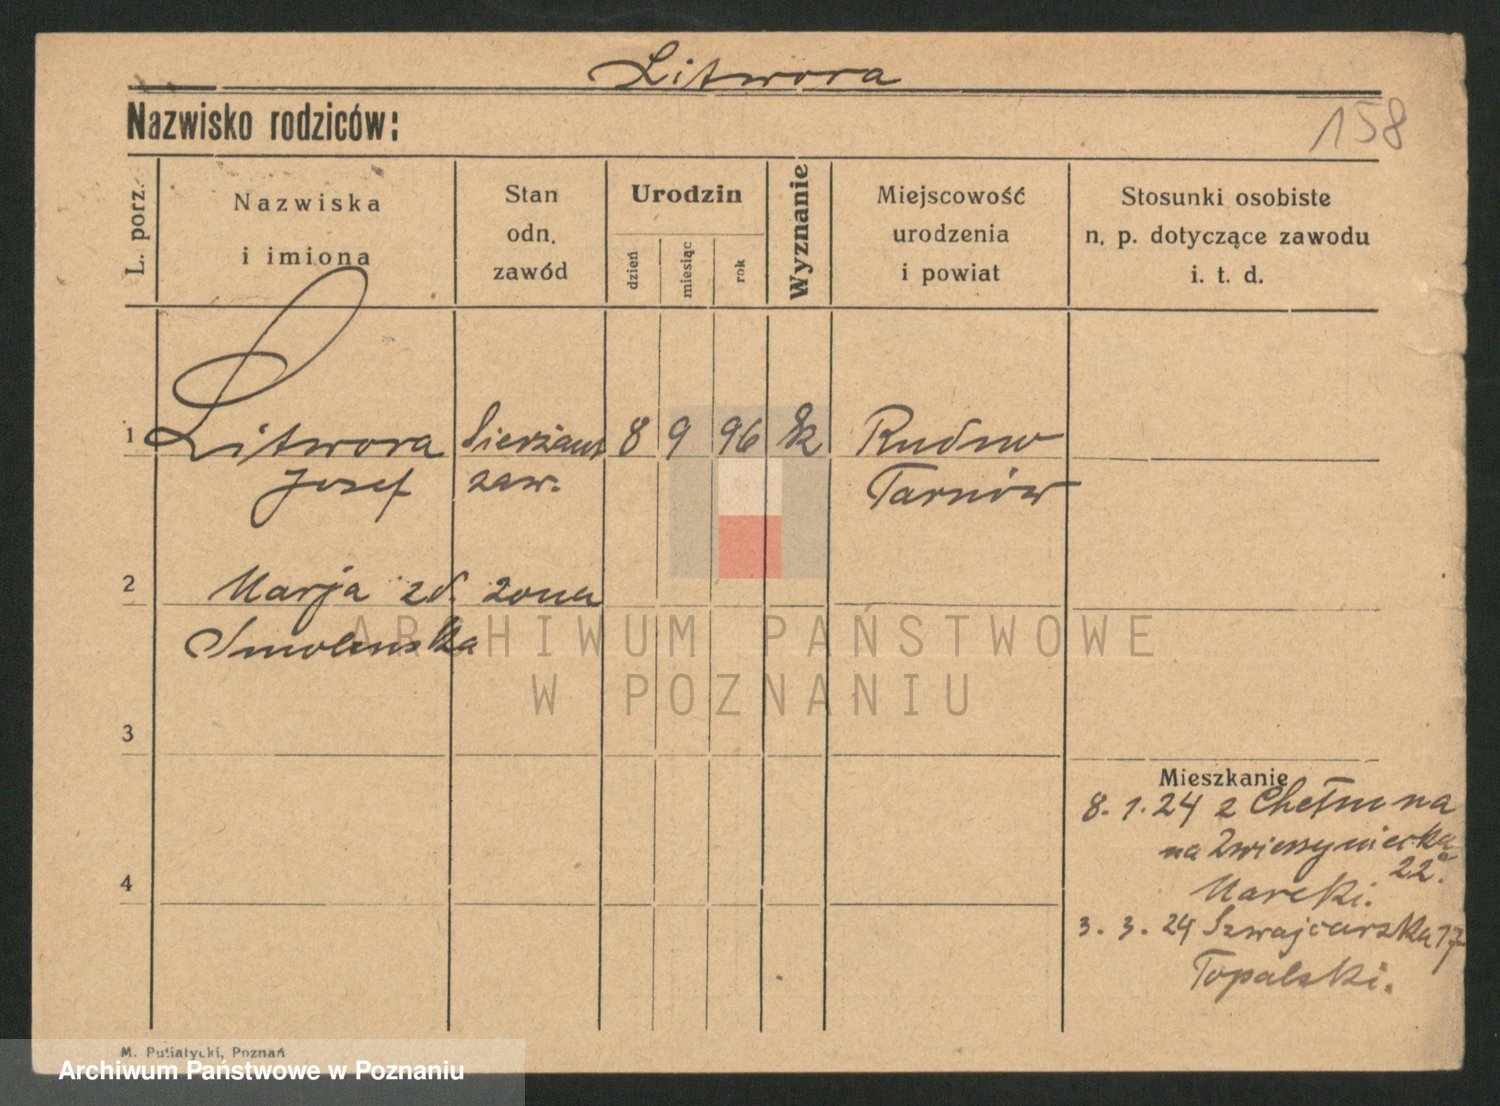 Litwora
Nazwisko rodziców:
158
L. porz.
Nazwiska
i imiona
Stan
odn.
zawód
Urodzin
dzień
miesiąc
rok
Wyznanie
Miejscowość
urodzenia
i powiat
Stosunki osobiste
n. p. dotyczące zawodu
i. t. d.
1 Litwora Sierżant 8 9 96 Rudno
Josef zaw. Tarnów
2 Marja zd. żona
Smolenska
ARCHIWUM PAŃSTWOWE
W POZNANIU
3
Mieszkanie
8. 1. 24 z Chełmna
na Zwierzyniecka
22
Marcki.
4
3. 3. 24 Szwajcarska 17
Topalski.
M. Putiatycki, Poznań
Archiwum Państwowe w Poznaniu